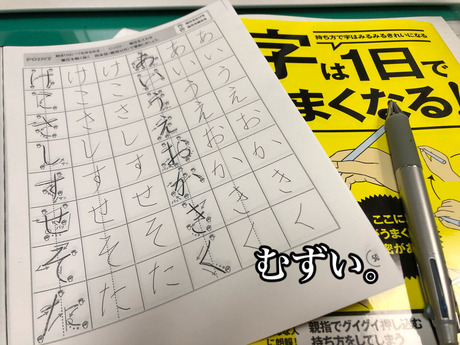 持ち方で字はみるみるきれいになる
字は1日で
まくなる!
POINT
あいうえおかきく
あいうえおかきく
あいうえおかきく
けこさしすせそた
けこさしすせそた
けこさしすせそた
ここに
うまく
密があ
親指でグイグイ押し込む
持ち方をしてしまう
むずい。